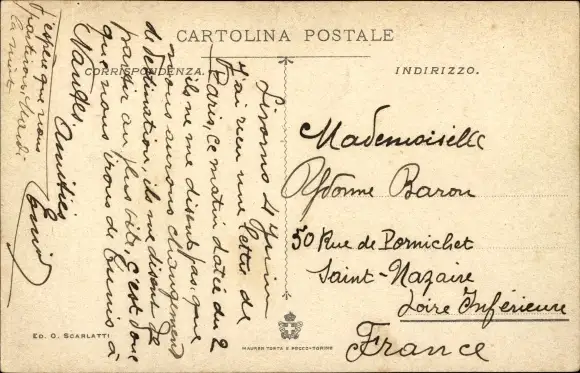 CARTOLINA POSTALE
CORRISPONDENZA.
INDIRIZZO.
Livorno 4 Juin
J'ai reçu une lettre de
Paris, ce matin datée du 2
ils ne me disent pas que
nous aurons changement
de destination, ils me disent de
partir au plus vite, c'est donc
que nous irons de Tunis à
Nantes.
Amitiés
J'espère que nous
partirons Mardi
la nuit
Mademoiselle
Yvonne Baron
50 Rue de Pornichet
Saint-Nazaire
Loire Inférieure
France
ED. O. SCARLATTI
MAURER TORTA E POCCO-TORINO